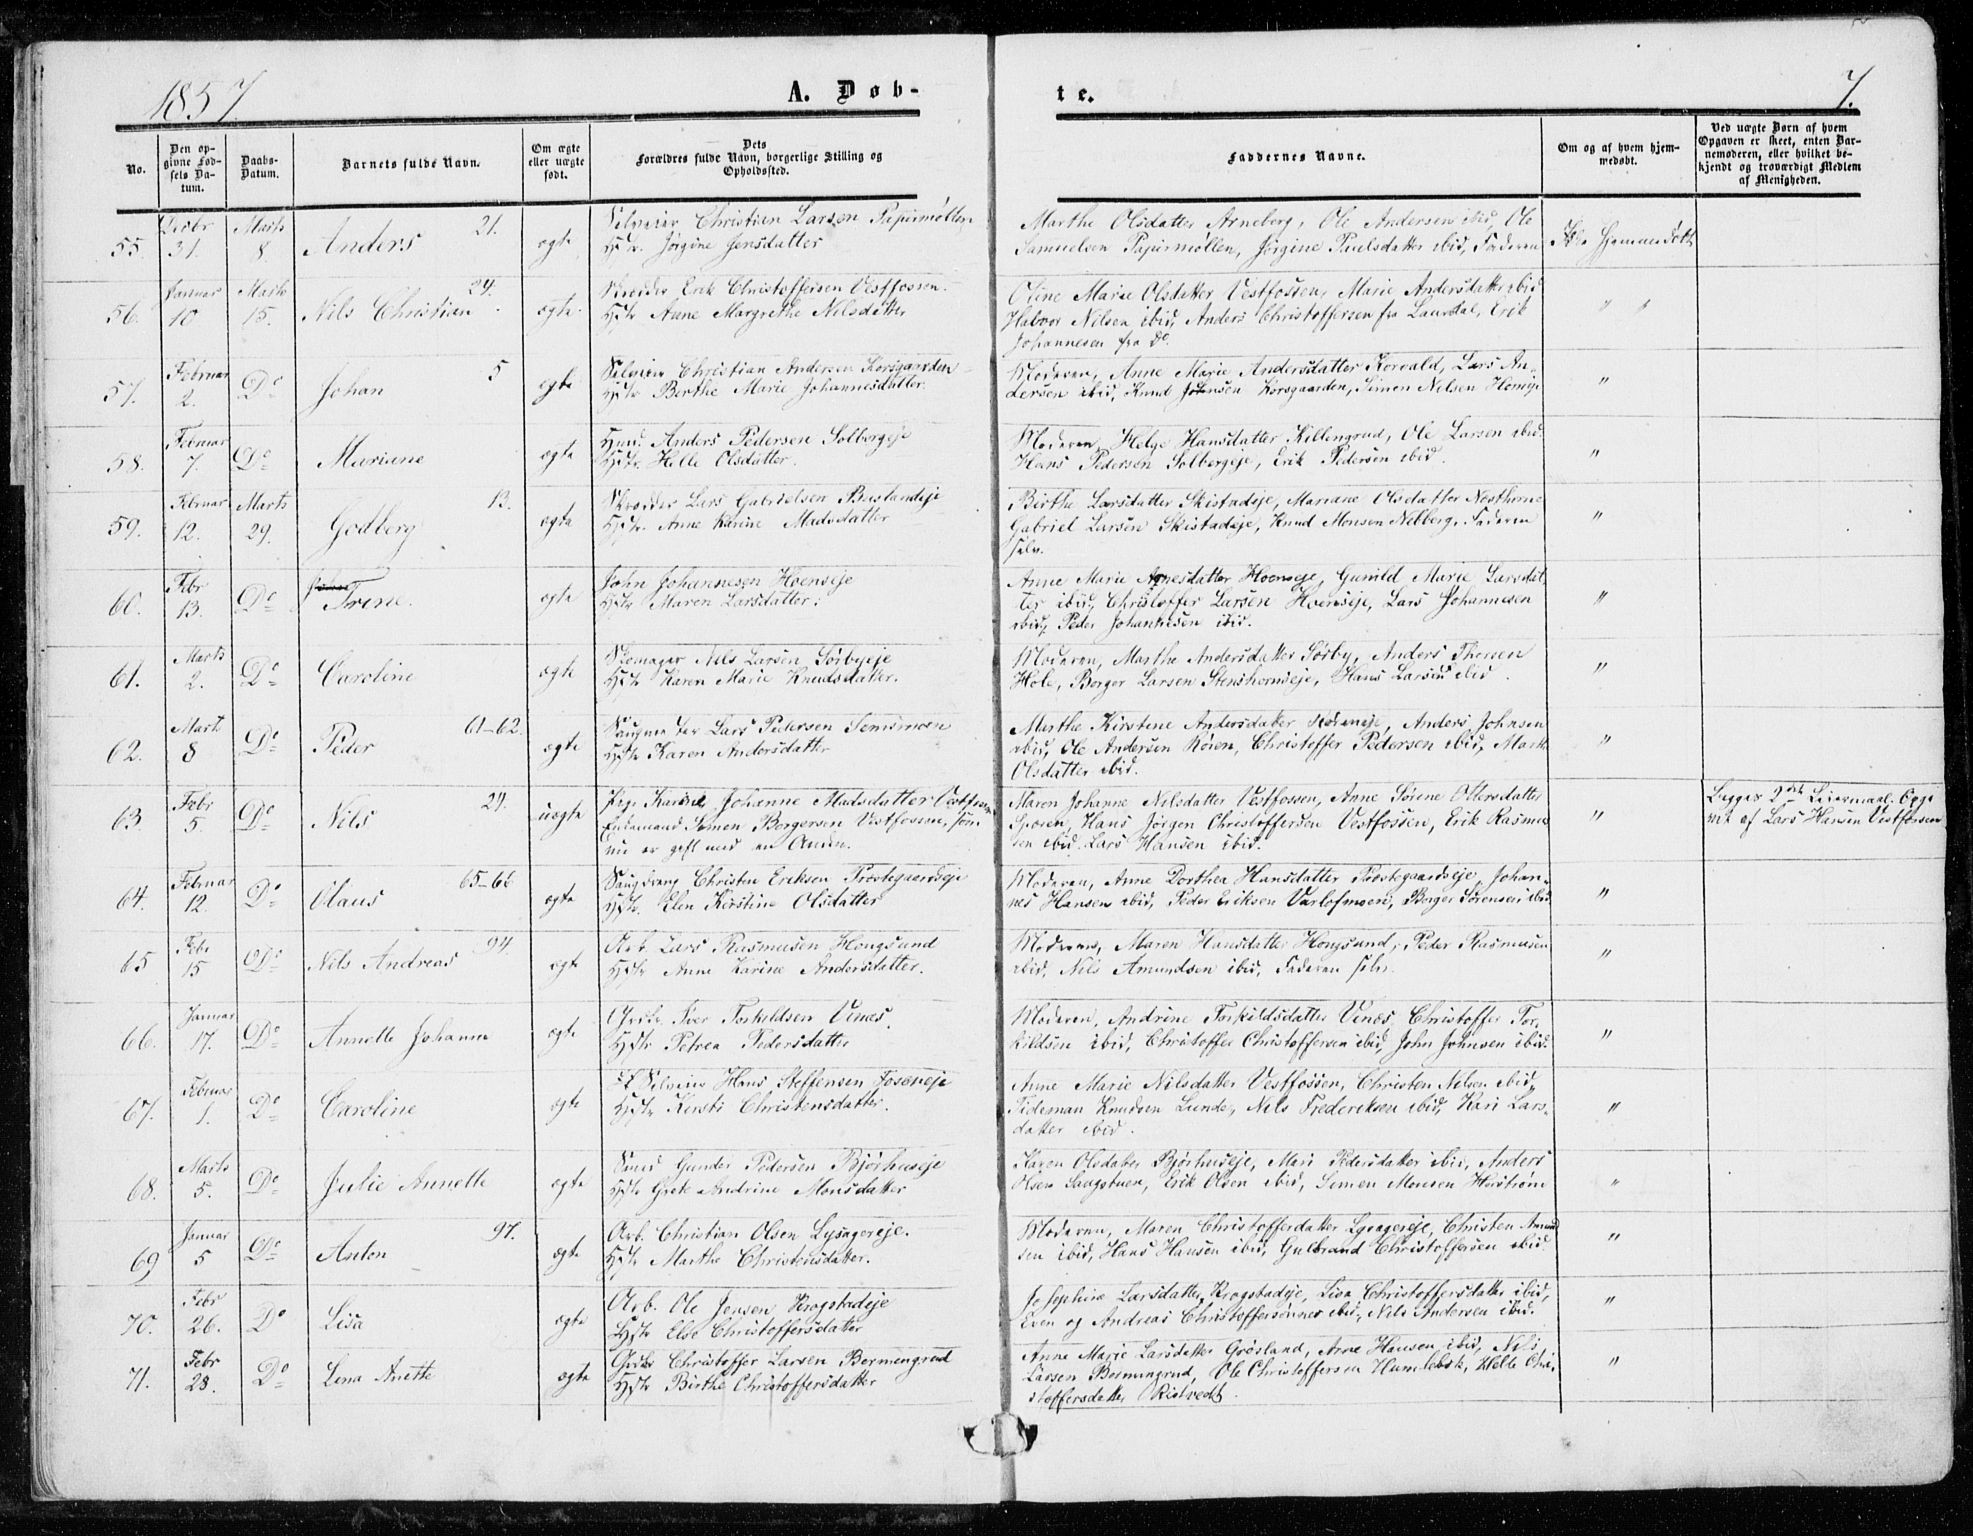 1857.
A. Døb-
te.
7.
No.
Den op-
givne Fød-
sels Da-
tum.
Daabs-
Datum.
Barnets fulde Navn.
Om ægte
eller uægte
født.
Dets
Forældres fulde Navn, borgerlige Stilling og
Opholdssted.
Faddernes Navne.
Om og af hvem hjem-
medøbt.
Ved uægte Børn af hvem
Opgaven er skeet, enten Bar-
nemoderen, eller hvilket be-
kjendt og troværdigt Medlem
af Menigheden.
55. Decbr 31. Marts 8. Anders 21. ægte
Selveier Christian Larsen Papirmøllen
Hst. Jørgine Jensdatter
Marthe Olsdatter Arneberg, Ole Andersen ibid, Ole
Samuelsen Papirmøllen, Jørgine Paulsdatter ibid, Faderen
Ikke hjemmedøbt
56. Januar 10 Marts 15. Nils Christian 24. ægte
Skrædder Erik Christoffersen Vestfossen.
Hst. Anne Margrethe Nilsdatter
Oline Marie Olsdatter Vestfossen, Marie Andersdatter ibid
Halvor Nilsen ibid, Anders Christoffersen fra Laurdal, Erik
Johannesen fra Do.
" "
57. Februar 2. Do Johan 5 ægte
Selveier Christian Andersen Korsgaarden
Hst. Berthe Marie Johannesdatter
Moderen, Anne Marie Andersdatter Korvald, Lars An-
dersen ibid, Knud Johnsen Korsgaarden, Simen Nilsen
"
58. Februar 7. Do Mariane ægte
Huusm. Anders Pedersen Solbergeje
Hst. Helle Olsdatter.
Moderen, Helge Hansdatter Killengrud, Ole Larsen ibid.
Hans Pedersen Solbergeje, Erik Pedersen ibid.
"
59. Februar 12. Marts 29. Godberg 13. ægte
Skrædder Lars Gabrielsen Buslandeje
Hst. Anne Karine Madsdatter
Birthe Larsdatter Skistadeje, Mariane Olsdatter Næsthorne
Gabriel Larsen Skistadeje, Knud Monsen Nelberg, Faderen
selv.
"
60. Febr 13. Do Trine. ægte
John Johannesen Hoenseje
Hst. Maren Larsdatter.
Anne Marie Arnesdatter Hoenseje, Gunild Marie Larsdat
ter ibid, Christoffer Larsen Hoenseje, Lars Johannesen
ibid, Peder Johannesen ibid.
"
61. Marts 2. Do Caroline ægte
Skomager Nils Larsen Sørbyeje
Hst. Karen Marie Knudsdatter.
Moderen, Marthe Andersdatter Sørby, Anders Thorsen
Hole, Borger Larsen Stenshorneje, Hans Larsen ibid.
"
62. Marts 8 Do Peder 61-62. ægte
Lars Pedersen Semsmoen
Hst. Karen Andersdatter
Marthe Kirstine Andersdatter, Anders Johnsen
ibid, Ole Andersen Røren, Christoffer Pedersen ibid, Marth
Olsdatter ibid.
"
63. Febr 5. Do Nils 29. uægte
Pige Karine Johanne Madsdatter Vestfossen
Enkemand Simen Borgersen Vestfossen, som
nu er gift med en Anden.
Maren Johanne Nilsdatter Vestfossen, Anne Sørine Ottersdatter
Sporen, Hans Jørgen Christoffersen Vestfossen, Erik Rasmu
sen ibid. Lars Hansen ibid.
"
Begges 2det Leiermaal. Opgi
vet af Lars Hansen Vestfossen
64. Februar 12. Do Olaus 65-66 ægte
Saugdreng Christen Eriksen Prostegaardseje
Hst. Elen Kirstine Olsdatter
Moderen, Anne Dorthea Hansdatter Prostegaardseje, Johan-
nes Hansen ibid, Peder Eriksen Varlofmoen, Borger Sørensen ibid
"
65 Feb. 15 Do Nils Andreas 94. ægte
Arb. Lars Rasmusen Hongsund
Hst. Anne Karine Andersdatter.
Moderen, Maren Hansdatter Hongsund, Peder Rasmusen
ibid, Nils Amundsen ibid, Faderen selv.
"
66. Januar 17. Do Annette Johanne ægte
Grdbr. Iver Torkildsen Vinæs.
Hst. Petrea Pedersdatter
Moderen, Andrine Torkildsdatter Vinæs Christoffer Tor-
kildsen ibid, Christoffer Christoffersen ibid, John Johnsen ibid.
"
67. Februar 1. Do Caroline ægte
Selveier Hans Steffensen Foseneje
Hst. Kirsti Christensdatter.
Anne Marie Nilsdatter Vestfossen, Christen Nilsen ibid,
Tideman Knudsen Lunde, Nils Frederiksen ibid, Kari Lars-
datter ibid.
"
68. Marts 5. Do Julie Annette ægte
Smed Gunder Pedersen Bjørhuseje
Hst. Grete Andrine Monsdatter
Karen Olsdatter Bjørhuseje, Mari Pedersdatter ibid, Anders
Olsen Saugstuen, Erik Olsen ibid, Simen Monsen Haistrøm
"
69 Januar 5 Do Anton 97. ægte
Arb. Christian Olsen Lysagereje.
Hst. Marthe Christensdatter.
Moderen, Maren Christofferdatter Lysageeje, Christen Amund
sen ibid, Hans Hansen ibid, Gulbrand Christoffersen ibid.
"
70. Febr 26. Do Lisa ægte
Arb. Ole Jensen Krogstadeje
Hst. Else Christoffersdatter
Josephine Larsdatter Krogstadeje, Lisa Christoffersdatter ibid,
Even og Andreas Christoffersønner ibid, Nils Andersen ibid.
"
71. Febr 28. Do Lena Anette ægte
Grdbr Christoffer Larsen Bermengrud
Hst. Birthe Christoffersdatter
Anne Marie Larsdatter Grøsland, Arne Hansen ibid, Nils
Larsen Bermingrud, Ole Christoffersen Humlebæk, Helle Chri-
stoffersdatter Ristvedt.
"